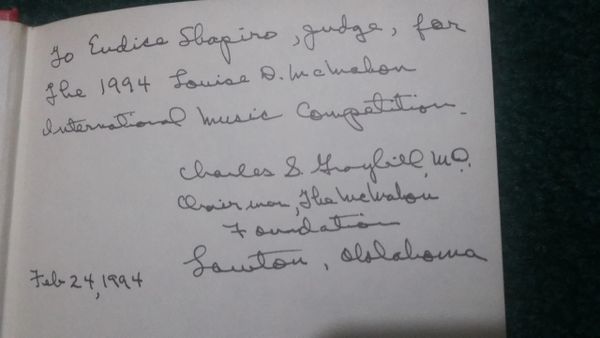 To Eudice Shapiro, judge, for
the 1994 Louise D. McMahon
International Music Competition.
Charles S. Graybill, M.D.
Chairman, The McMahon
Foundation
Lawton, Oklahoma
Feb 24, 1994